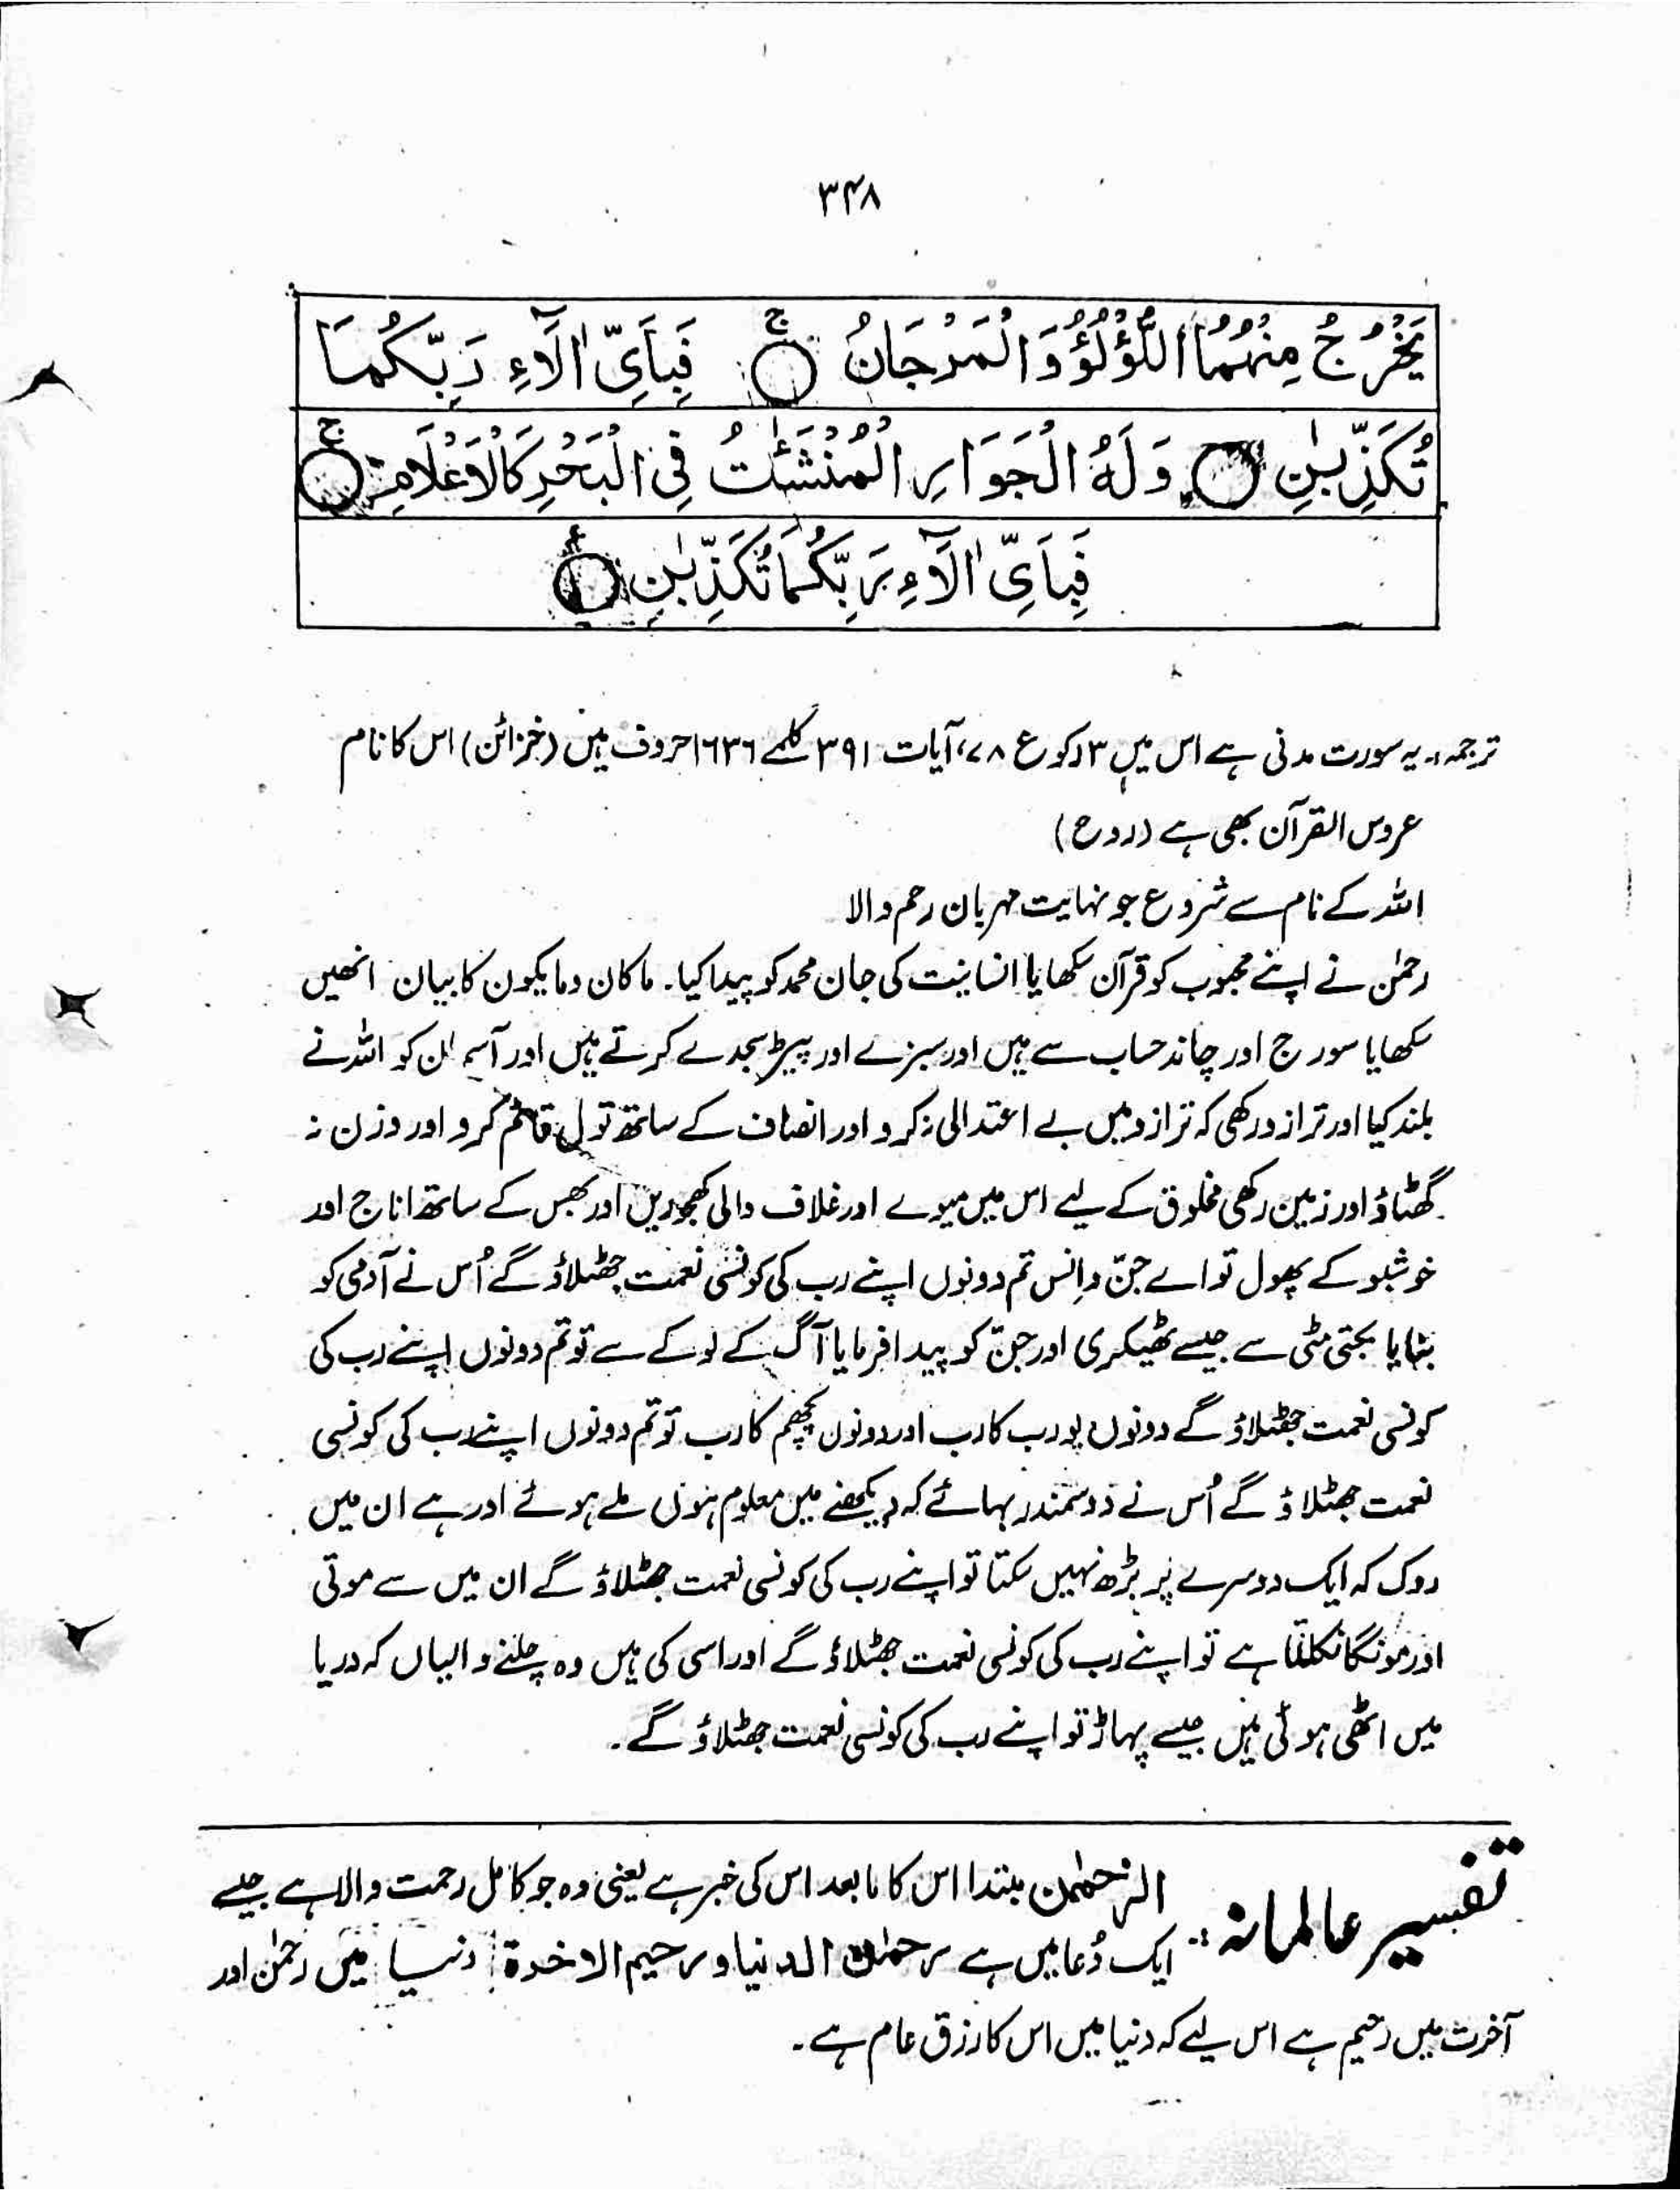 ۳۴۸
يَخْرُجُ مِنْهُمَا اللُّؤْلُؤُ وَالْمَرْجَانُ ۚ۝ فَبِاَىِّ اٰلَآءِ رَبِّكُمَا
تُكَذِّبٰنِ ۝ وَلَهُ الْجَوَارِ الْمُنْشَئٰتُ فِى الْبَحْرِ كَالْاَعْلَامِ ۚ۝
فَبِاَىِّ اٰلَآءِ رَبِّكُمَا تُكَذِّبٰنِ ۝
ترجمہ:۔ یہ سورت مدنی ہے اس میں ۳ رکوع ۷۸، آیات ۳۹۱ کلمے ۱۶۳۶ حروف ہیں (خزائن) اس کا نام
عروس القرآن بھی ہے (روح)
اللہ کے نام سے شروع جو نہایت مہربان رحم والا
رحمٰن نے اپنے محبوب کو قرآن سکھایا انسانیت کی جان محمد کو پیدا کیا۔ ماکان ومایکون کا بیان انھیں
سکھایا سورج اور چاند حساب سے ہیں اور سبزے اور پیڑ سجدے کرتے ہیں اور آسمان کو اللہ نے
بلند کیا اور ترازو رکھی کہ ترازو میں بے اعتدالی نہ کرو اور انصاف کے ساتھ تول قائم کرو اور وزن نہ
گھٹاؤ اور زمین رکھی مخلوق کے لیے اس میں میوے اور غلاف والی کھجوریں اور بھس کے ساتھ اناج اور
خوشبو کے پھول تو اے جنّ و اِنس تم دونوں اپنے رب کی کونسی نعمت جھٹلاؤ گے اُس نے آدمی کو
بنایا بجتی مٹی سے جیسے ٹھیکری اور جنّ کو پیدا فرمایا آگ کے لوکے سے تو تم دونوں اپنے رب کی
کونسی نعمت جھٹلاؤ گے دونوں پورب کا رب اور دونوں پچھم کا رب تو تم دونوں اپنے رب کی کونسی
نعمت جھٹلاؤ گے اُس نے دو سمندر بہائے کہ دیکھنے میں معلوم ہوں ملے ہوئے اور ہے ان میں
روک کہ ایک دوسرے پر بڑھ نہیں سکتا تو اپنے رب کی کونسی نعمت جھٹلاؤ گے ان میں سے موتی
اور مونگا نکلتا ہے تو اپنے رب کی کونسی نعمت جھٹلاؤ گے اور اسی کی ہیں وہ چلنے والیاں کہ دریا
میں اٹھی ہوئی ہیں جیسے پہاڑ تو اپنے رب کی کونسی نعمت جھٹلاؤ گے۔
تفسیر عالمانہ:۔ الرحمٰن مبتدا اس کا مابعد اس کی خبر ہے یعنی وہ جو کامل رحمت والا ہے جیسے
ایک دُعا میں ہے رحمٰن الدنیا و رحیم الاخرۃ دنیا میں رحمٰن اور
آخرت میں رحیم ہے اس لیے کہ دنیا میں اس کا رزق عام ہے۔